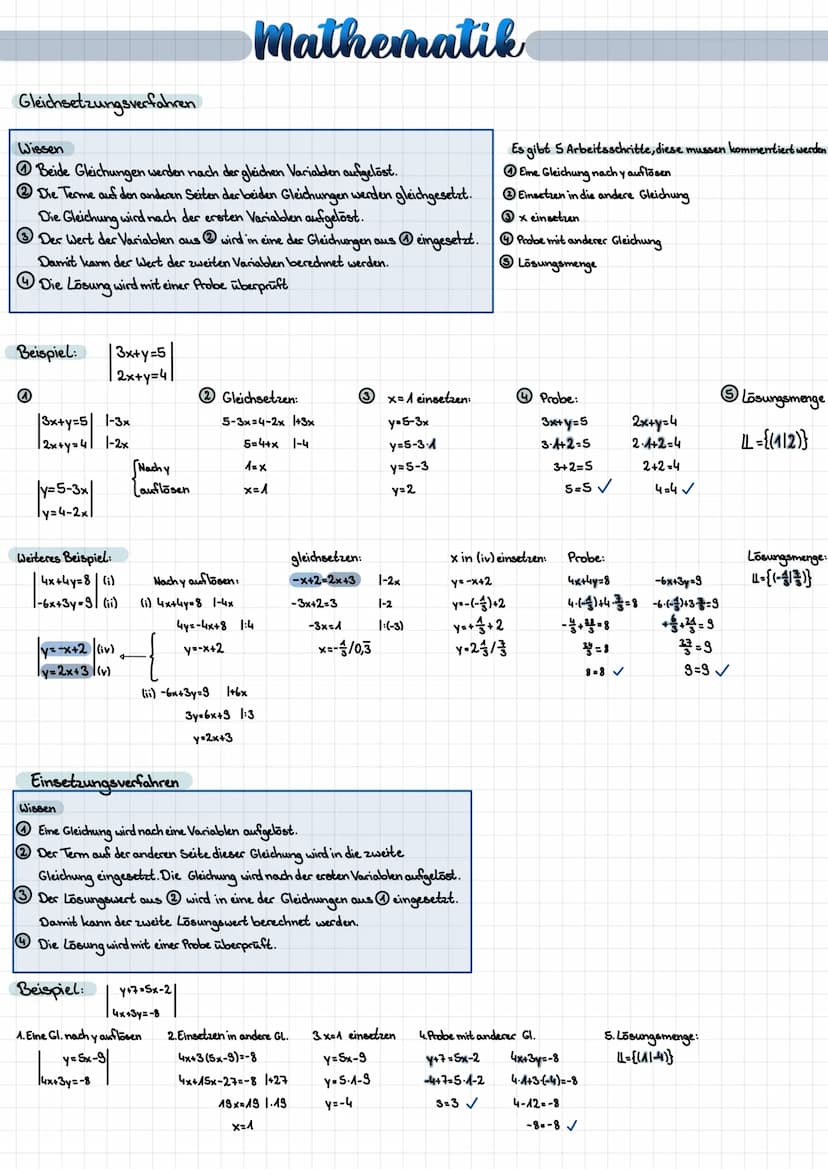 Mathematik
Gleichsetzungsverfahren
Wissen
① Beide Gleichungen werden nach der gleichen Variablen aufgelöst.
② Die Terme auf den anderen Seiten der beiden Gleichungen werden gleichgesetzt.
Die Gleichung wird nach der ersten Variablen aufgelöst.
③ Der Wert der Variablen aus ② wird in eine der Gleichungen aus ① eingesetzt.
Damit kann der Wert der zweiten Variablen berechnet werden.
④ Die Lösung wird mit einer Probe überprüft
Es gibt 5 Arbeitsschritte, diese mussen kommentiert werden
① Eine Gleichung nach y auflösen
② Einsetzen in die andere Gleichung
③ x einsetzen
④ Probe mit anderer Gleichung
⑤ Lösungsmenge
Beispiel:
|3x+y=5|
|2x+y=4|
①
|3x+y=5| |-3x
|2x+y=4| |-2x
{Nach y
auflösen
|y=5-3x|
|y=4-2x|
② Gleichsetzen:
5-3x=4-2x |+3x
5=4+x |-4
1=x
x=1
③ x=1 einsetzen:
y=5-3x
y=5-3·1
y=5-3
y=2
④ Probe:
3x+y=5
3·1+2=5
3+2=5
5=5 ✓
2x+y=4
2·1+2=4
2+2=4
4=4 ✓
⑤ Lösungsmenge
𝕃={(1|2)}
Weiteres Beispiel:
|4x+4y=8| (i)
|-6x+3y=9| (ii)
|y=-x+2| (iv)
|y=2x+3| (v)
Nach y auflösen:
(i) 4x+4y=8 |-4x
4y=-4x+8 |:4
y=-x+2
(ii) -6x+3y=9 |+6x
3y=6x+9 |:3
y=2x+3
gleichsetzen:
-x+2=2x+3 |-2x
-3x+2=3 |-2
-3x=1 |:(-3)
x=-1/3/0,3̅
x in (iv) einsetzen:
y=-x+2
y=-(-1/3)+2
y=+1/3+2
y=2 1/3/7/3
Probe:
4x+4y=8
4·(-1/3)+4·7/3=8
-4/3+28/3=8
24/3=8
8=8 ✓
-6x+3y=9
-6·(-1/3)+3·7/3=9
+6/3+21/3=9
27/3=9
9=9 ✓
Lösungsmenge:
𝕃={(-1/3|7/3)}
Einsetzungsverfahren
Wissen
① Eine Gleichung wird nach eine Variablen aufgelöst.
② Der Term auf der anderen Seite dieser Gleichung wird in die zweite
Gleichung eingesetzt. Die Gleichung wird nach der ersten Variablen aufgelöst.
③ Der Lösungswert aus ② wird in eine der Gleichungen aus ① eingesetzt.
Damit kann der zweite Lösungswert berechnet werden.
④ Die Lösung wird mit einer Probe überprüft.
Beispiel:
|y+7=5x-2|
|4x+3y=-8
1. Eine Gl. nach y auflösen
|y=5x-9|
|4x+3y=-8
2. Einsetzen in andere Gl.
4x+3(5x-9)=-8
4x+15x-27=-8 |+27
19x=19 |:19
x=1
3. x=1 einsetzen
y=5x-9
y=5·1-9
y=-4
4. Probe mit anderer Gl.
y+7=5x-2
-4+7=5·1-2
3=3 ✓
4x+3y=-8
4·1+3·(-4)=-8
4-12=-8
-8=-8 ✓
5. Lösungsmenge:
𝕃={(1|-4)}